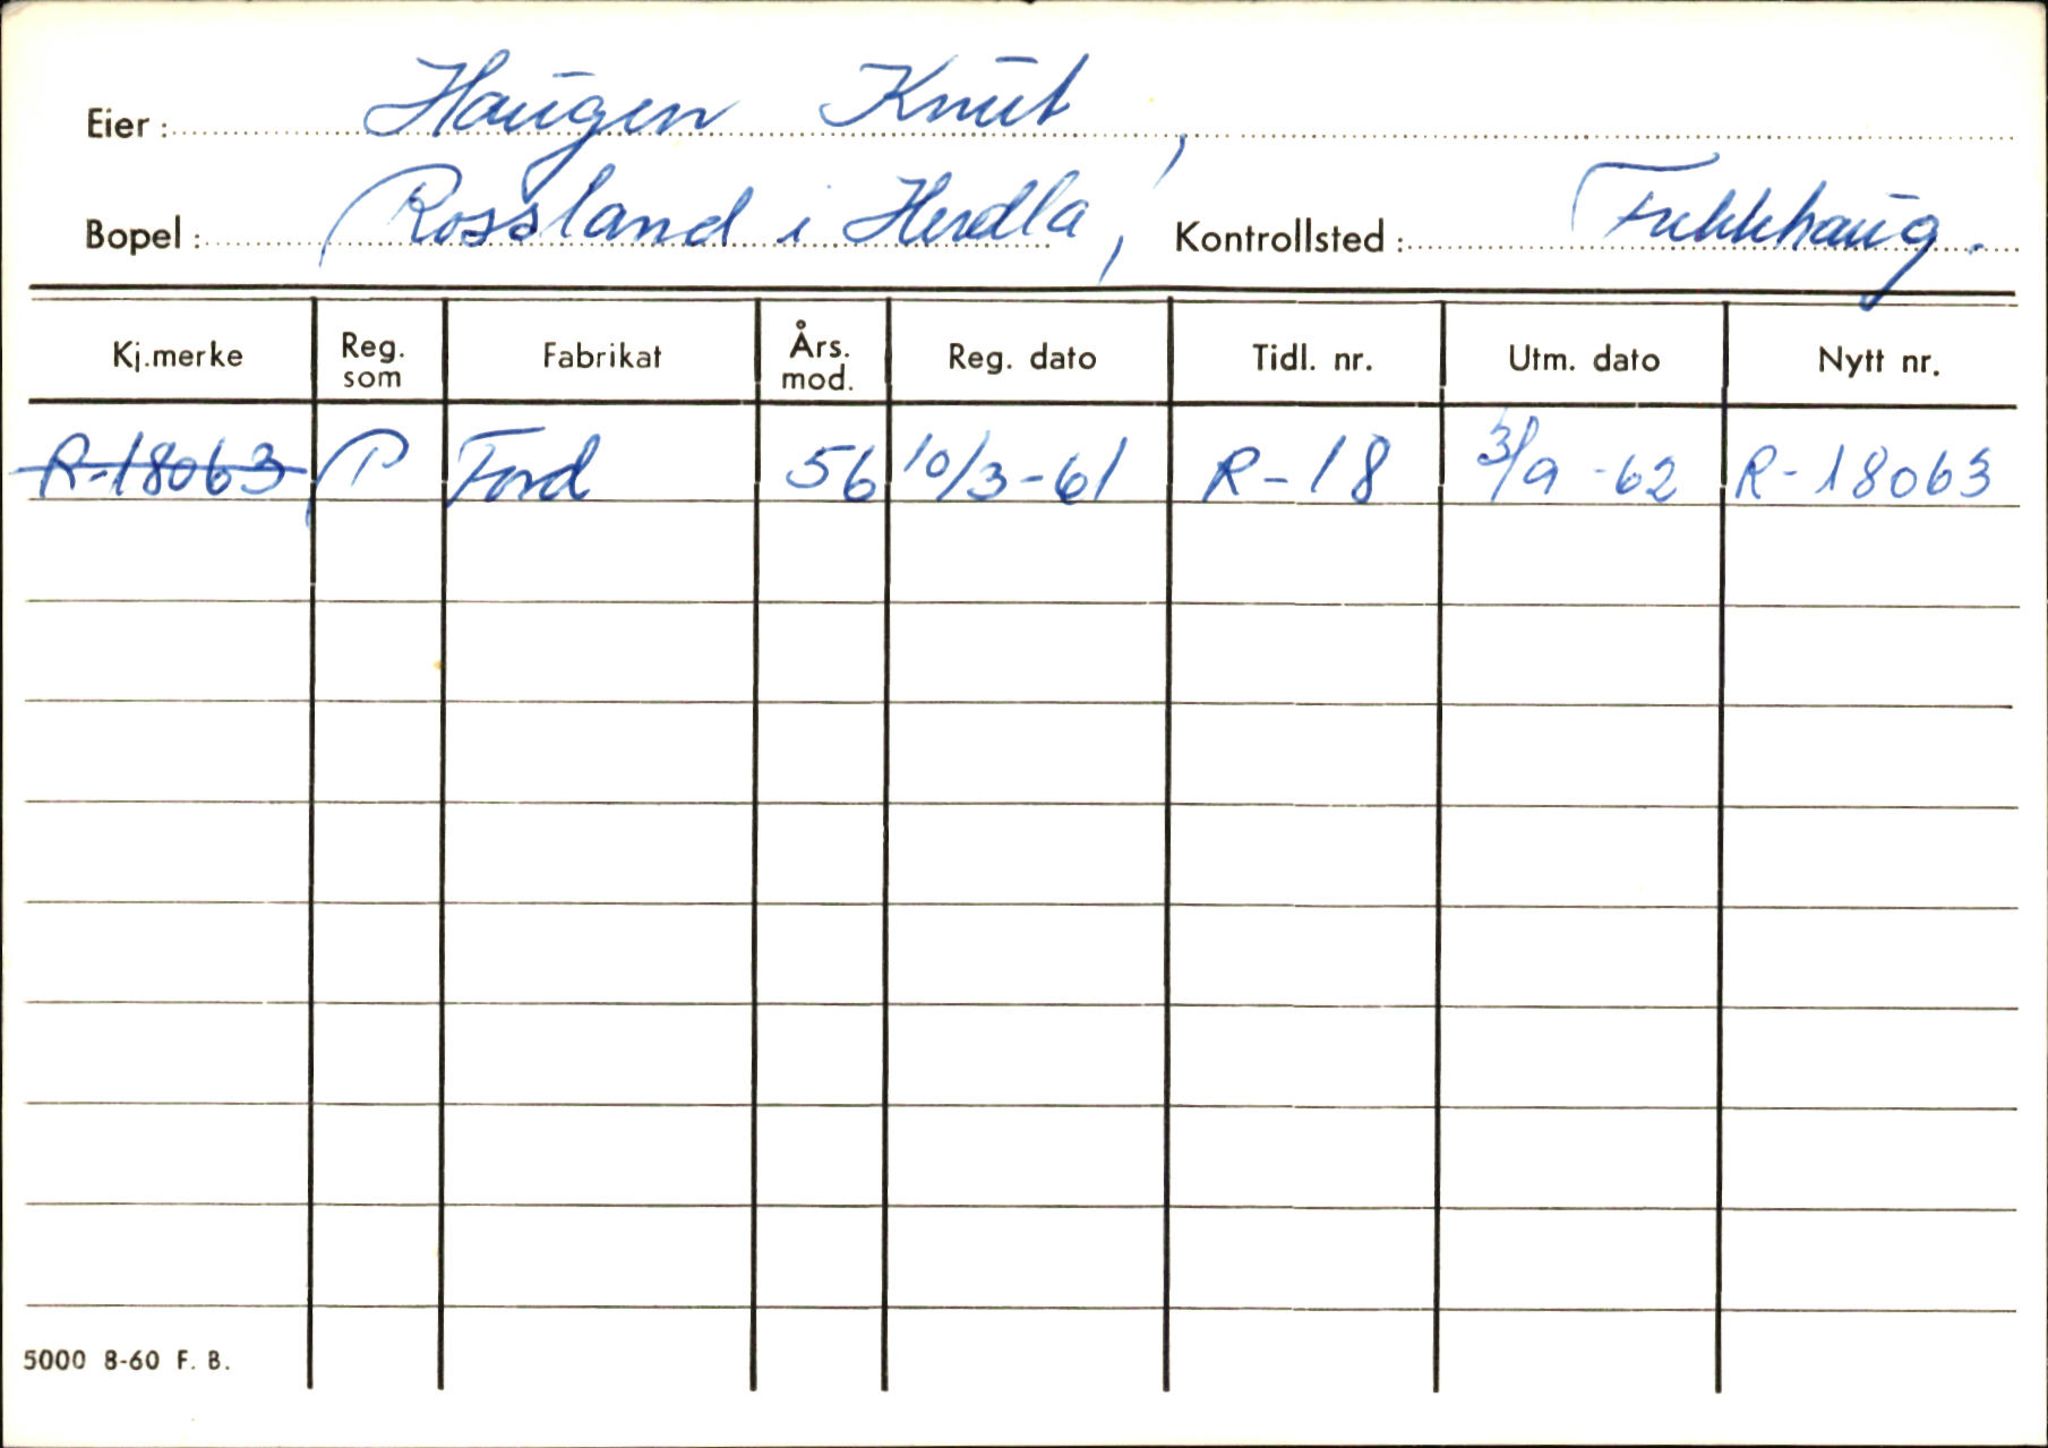 Eier : Haugen Knut,
Bopel : Rossland i Herdla, Kontrollsted : Frekhaug.
Kj.merke Reg. som Fabrikat Års. mod. Reg. dato Tidl. nr. Utm. dato Nytt nr.
R-18063 P Ford 56 10/3-61 R-18 3/9-62 R-18063
5000 8-60 F. B.